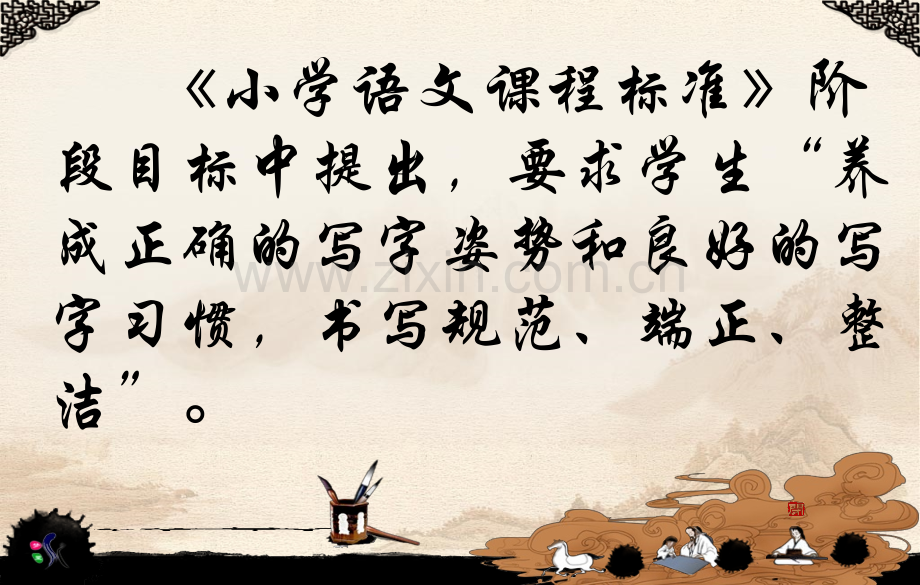 《小学语文课程标准》阶
段目标中提出，要求学生“养
成正确的写字姿势和良好的写
字习惯，书写规范、端正、整
洁”。
www.zixin.com.cn